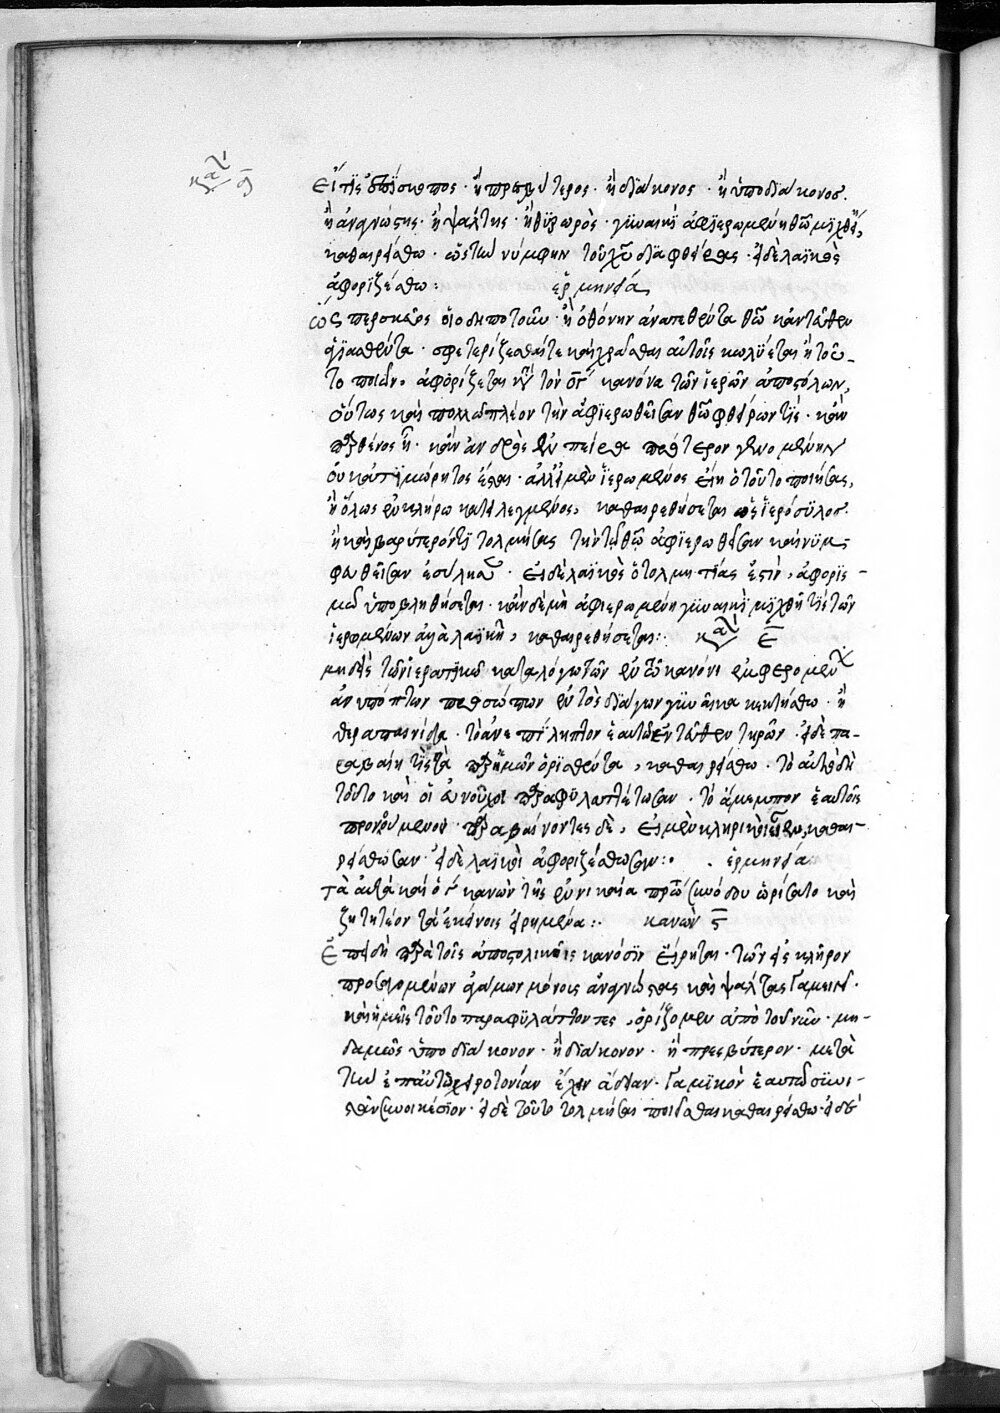 καν δ
Εἴ τις ἐπίσκοπος · ἢ πρεσβύτερος · ἢ διάκονος · ἢ ὑποδιάκονος
ἢ ἀναγνώστης · ἢ ψάλτης · ἢ θυρωρὸς · γυναικὶ ἀφιερωμένῃ θεῶ μιχθῇ,
καθαιρείσθω · ὡς τὴν νύμφην τοῦ χῦ διαφθείρας · εἰ δὲ λαϊκὸς
ἀφοριζέσθω: ἑρμηνεία
Ὥσπερ σκεῦος ἢ ὀθόνην ἀνατεθέντα θεῶ καὶ ἐνταῦθα
ἁγιασθέντα · σφετερίζεσθαί τε καὶ χρᾶσθαι αὐτοῖς κωλύεται ἢ τοῦ-
το ποιῶν · ἀφορίζεται κατὰ τὸν ογ κανόνα τῶν ἱερῶν ἀποστόλων,
οὕτως καὶ πολλῶ πλέον τὴν ἀφιερωθεῖσαν θεῶ φθείρων τίς · κἂν
παρθένος ἦ · κἂν ἀνδρὸς ἐν πείρα πρότερον γενομένην
οὐκ ἀτιμώρητος ἔσται · ἀλλ' εἰ μὲν ἱερωμένος εἴη ὁ τοῦτο ποιήσας,
ἢ ὅλως ἐν κλήρω κατειλεγμένος, καθαιρεθήσεται ὡς ἱερόσυλος
ἢ καὶ βαρύτερόν τι τολμήσας τὴν τῶ θεῶ ἀφιερωθεῖσαν καὶ νυμ-
φωθεῖσαν ἐσύλησεν · εἰ δὲ λαϊκὸς ὁ τολμητίας ἐστὶν, ἀφορισ-
μῶ ὑποβληθήσεται · κἂν δὲ μὴ ἀφιερωμένη γυναικὶ μιχθῆ τίς τῶν
ἱερωμένων ἀλλὰ λαϊκῆ, καθαιρεθήσεται: καν ε
μηδεὶς τῶν ἱερατικῶ καταλόγω τῶν ἐν τῶ κανόνι ἐμφερομένων
ἀνυπόπτων προσώπων ἐκτὸς διάγων γυναῖκα κεκτήσθω · ἢ
θεραπαινίδα · τὸ ἀνεπίληπτον ἑαυτῶ ἐντεῦθεν τηρῶν · εἰ δὲ πα-
ραβαίη τίς τὰ παρ' ἡμῶν ὁρισθέντα, καθαιρείσθω · τὸ αὐτὸ δὲ
τοῦτο καὶ οἱ εὐνοῦχοι παραφυλαττέτωσαν · τὸ ἄμεμπτον ἑαυτοῖς
προνοούμενοι · παραβαίνοντες δὲ, εἰ μὲν κληρικοὶ εἶεν, καθαι-
ρείσθωσαν · εἰ δὲ λαϊκοὶ ἀφοριζέσθωσαν: ἑρμηνεία
τὰ αὐτὰ καὶ ὁ γ κανὼν τῆς ἐν νικαία πρώτης συνόδου ὡρίσατο καὶ
ζητητέον τὰ ἐκείνοις εἰρημένα: κανὼν ϛ
Ἐπειδὴ παρὰ τοῖς ἀποστολικοῖς κανόσιν εἴρηται · τῶν εἰς κλῆρον
προαγομένων ἀγάμων μόνοις ἀναγνώστας καὶ ψάλτας γαμεῖν ·
καὶ ἡμεῖς τοῦτο παραφυλάττοντες, ὁρίζομεν ἀπὸ τοῦ νῦν · μη-
δαμῶς ὑποδιάκονον · ἢ διάκονον · ἢ πρεσβύτερον · μετὰ
τὴν ἐπ' αὐτῶ χειροτονίαν ἔχειν ἄδειαν · γαμικὸν ἑαυτῶ συνι-
στᾶν συνοικέσιον · εἰ δὲ τοῦτο τολμήσει ποιῆσαι καθαιρείσθω · εἰ δὲ